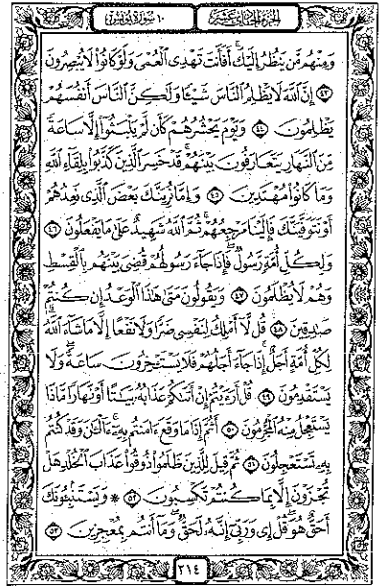 الجزء الحادي عشر ١٠ سورة يونس
وَمِنْهُم مَّن يَنظُرُ إِلَيْكَ أَفَأَنتَ تَهْدِي الْعُمْيَ وَلَوْ كَانُوا لَا يُبْصِرُونَ
٤٣ إِنَّ اللَّهَ لَا يَظْلِمُ النَّاسَ شَيْئًا وَلَٰكِنَّ النَّاسَ أَنفُسَهُمْ
يَظْلِمُونَ ٤٤ وَيَوْمَ يَحْشُرُهُمْ كَأَن لَّمْ يَلْبَثُوا إِلَّا سَاعَةً
مِّنَ النَّهَارِ يَتَعَارَفُونَ بَيْنَهُمْ قَدْ خَسِرَ الَّذِينَ كَذَّبُوا بِلِقَاءِ اللَّهِ
وَمَا كَانُوا مُهْتَدِينَ ٤٥ وَإِمَّا نُرِيَنَّكَ بَعْضَ الَّذِي نَعِدُهُمْ
أَوْ نَتَوَفَّيَنَّكَ فَإِلَيْنَا مَرْجِعُهُمْ ثُمَّ اللَّهُ شَهِيدٌ عَلَىٰ مَا يَفْعَلُونَ ٤٦
وَلِكُلِّ أُمَّةٍ رَّسُولٌ فَإِذَا جَاءَ رَسُولُهُمْ قُضِيَ بَيْنَهُم بِالْقِسْطِ
وَهُمْ لَا يُظْلَمُونَ ٤٧ وَيَقُولُونَ مَتَىٰ هَٰذَا الْوَعْدُ إِن كُنتُمْ
صَٰدِقِينَ ٤٨ قُل لَّا أَمْلِكُ لِنَفْسِي ضَرًّا وَلَا نَفْعًا إِلَّا مَا شَاءَ اللَّهُ
لِكُلِّ أُمَّةٍ أَجَلٌ إِذَا جَاءَ أَجَلُهُمْ فَلَا يَسْتَـْٔخِرُونَ سَاعَةً وَلَا
يَسْتَقْدِمُونَ ٤٩ قُلْ أَرَءَيْتُمْ إِنْ أَتَىٰكُمْ عَذَابُهُ بَيَٰتًا أَوْ نَهَارًا مَّاذَا
يَسْتَعْجِلُ مِنْهُ الْمُجْرِمُونَ ٥٠ أَثُمَّ إِذَا مَا وَقَعَ ءَامَنتُم بِهِ ءَآلْـَٰٔنَ وَقَدْ كُنتُم
بِهِ تَسْتَعْجِلُونَ ٥١ ثُمَّ قِيلَ لِلَّذِينَ ظَلَمُوا ذُوقُوا عَذَابَ الْخُلْدِ هَلْ
تُجْزَوْنَ إِلَّا بِمَا كُنتُمْ تَكْسِبُونَ ٥٢ ۞ وَيَسْتَنۢبِـُٔونَكَ
أَحَقٌّ هُوَ قُلْ إِي وَرَبِّي إِنَّهُ لَحَقٌّ وَمَا أَنتُم بِمُعْجِزِينَ ٥٣
٢١٤